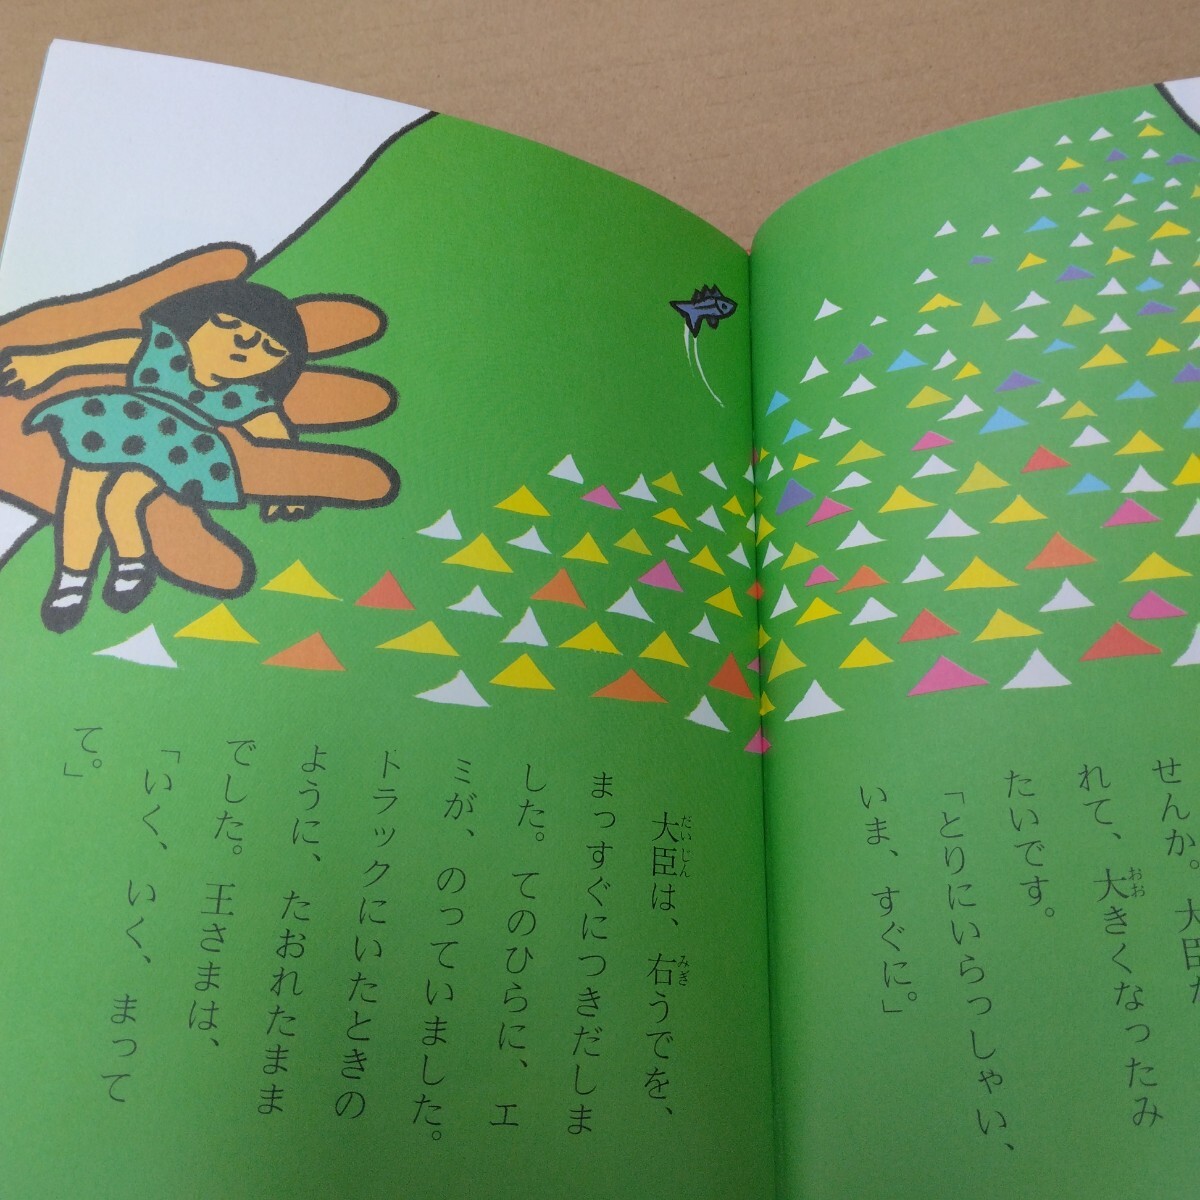 せんか。大臣だ
れて、大きくなったみ
たいです。
「とりにいらっしゃい、
いま、すぐに。」
大臣は、右うでを、
まっすぐにつきだしま
した。てのひらに、エ
ミが、のっていました。
トラックにいたときの
ように、たおれたまま
でした。王さまは、
「いく、いく、まって
て。」